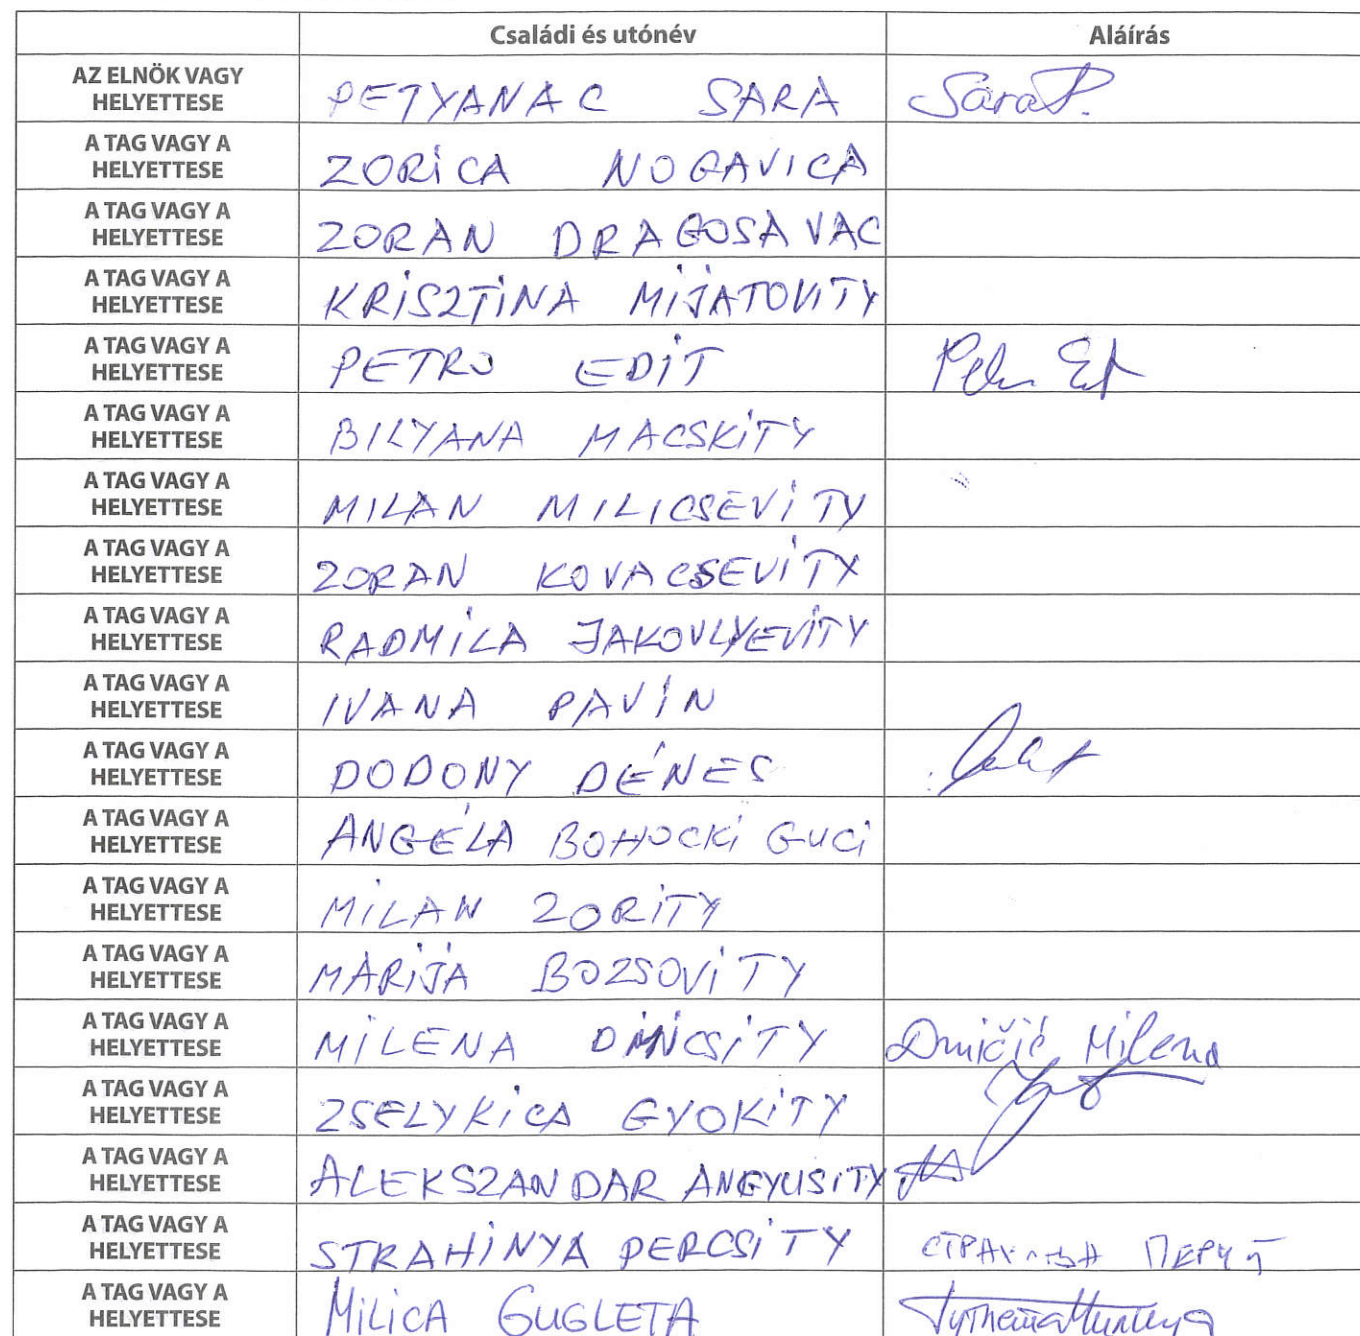 Családi és utónév Aláírás
AZ ELNÖK VAGY HELYETTESE PETYANAC SARA Sara P.
A TAG VAGY A HELYETTESE ZORICA NOGAVICA
A TAG VAGY A HELYETTESE ZORAN DRAGOSAVAC
A TAG VAGY A HELYETTESE KRISZTINA MIJATOVITY
A TAG VAGY A HELYETTESE PETRO EDIT
A TAG VAGY A HELYETTESE BILYANA MACSKITY
A TAG VAGY A HELYETTESE MILAN MILICSEVITY
A TAG VAGY A HELYETTESE ZORAN KOVACSEVITY
A TAG VAGY A HELYETTESE RADMILA JAKOVLYEVITY
A TAG VAGY A HELYETTESE IVANA PAVIN
A TAG VAGY A HELYETTESE DODONY DÉNES
A TAG VAGY A HELYETTESE ANGÉLA BOHOCKI GUCI
A TAG VAGY A HELYETTESE MILAN ZORITY
A TAG VAGY A HELYETTESE MARIJA BOZSOVITY
A TAG VAGY A HELYETTESE MILENA Milena
A TAG VAGY A HELYETTESE ZSELYKICA GYOKITY
A TAG VAGY A HELYETTESE ALEKSZANDAR ANGYUSITY
A TAG VAGY A HELYETTESE STRAHINYA PERCSITY
A TAG VAGY A HELYETTESE MILICA GUGLETA